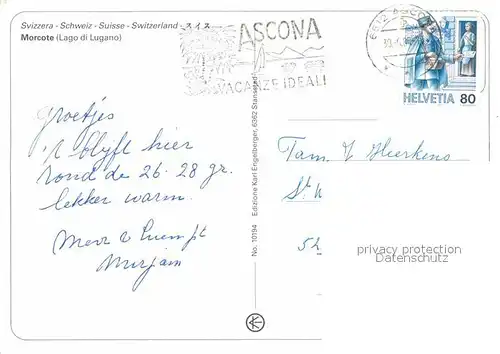 Svizzera - Schweiz - Suisse - Switzerland - スイス
Morcote (Lago di Lugano)
ASCONA
VACANZE IDEALI
6612 ASCONA
HELVETIA 80
Groetjes
't blijft hier
rond de 26-28 gr.
lekker warm.
Mirjam
No. 10194 Edizione Karl Engelberger, 6362 Stansstad
Fam. Heerkens
St.
52
privacy protection
Datenschutz